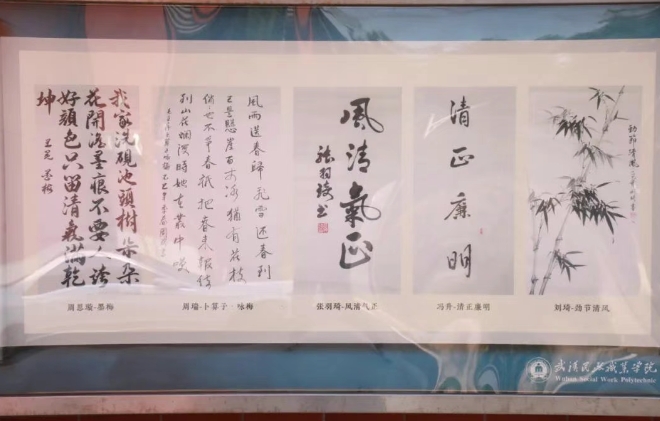 我家洗硯池頭樹朵朵
花開淡墨痕不要人誇
好顏色只留清氣滿乾
坤
王冕 墨梅
風雨送春歸 飛雪迎春到
已是懸崖百丈冰猶有花枝
俏也不爭春祇把春來報待
到山花爛漫時她在叢中笑
風清氣正
張羽琦書
清正廉明
劲節清風
周思璇-墨梅
周瑞-卜算子·咏梅
张羽琦-风清气正
冯升-清正廉明
刘琦-劲节清风
武漢民政職業學院
Wuhan Social Work Polytechnic